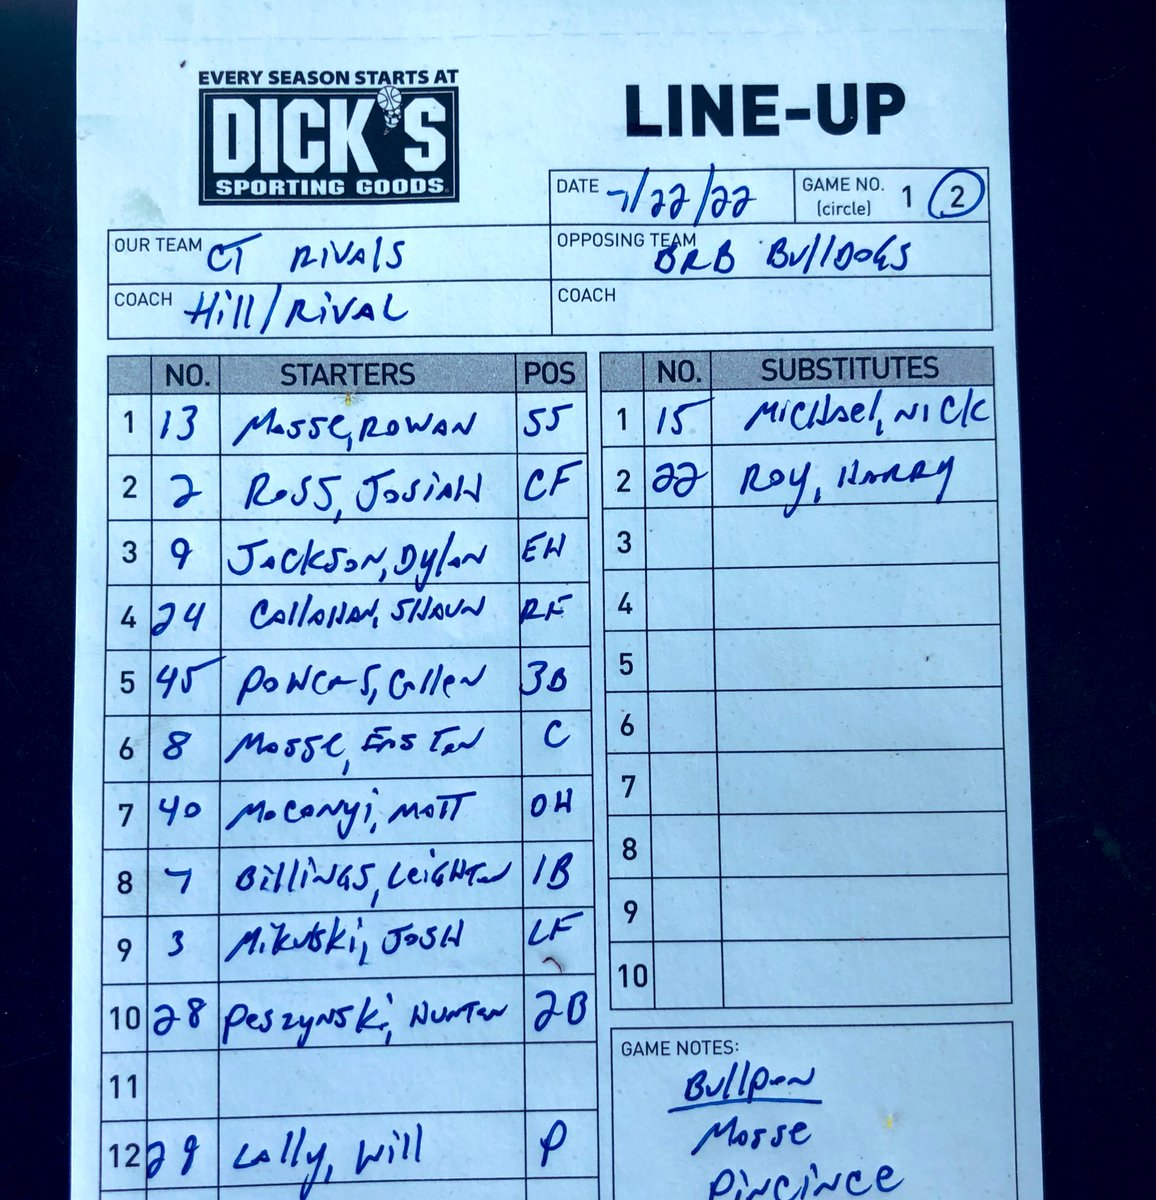 EVERY SEASON STARTS AT
DICK'S
SPORTING GOODS
LINE-UP
DATE 7/22/22 GAME NO. (circle) 1 2
OUR TEAM CT RIVALS
OPPOSING TEAM BRB BullDOGS
COACH Hill/RIVAL
COACH
NO. STARTERS POS
1 13 Mosse, ROWAN SS
2 2 ROSS, JOSIAH CF
3 9 JACKSON, Dylan EH
4 24 CALLAHAN, SHAUN RF
5 45 POWERS, Cullen 3B
6 8 Mosse, EASTON C
7 40 Mocanyi, MATT DH
8 7 BillINGS, LEIGHTON 1B
9 3 Mikulski, JOSH LF
10 28 Peszynski, HUNTER 2B
11
12 29 Lally, Will P
NO. SUBSTITUTES
1 15 MICHAEL, NICK
2 22 ROY, HARRY
3
4
5
6
7
8
9
10
GAME NOTES:
Bullpen
Mosse
PINCINCE